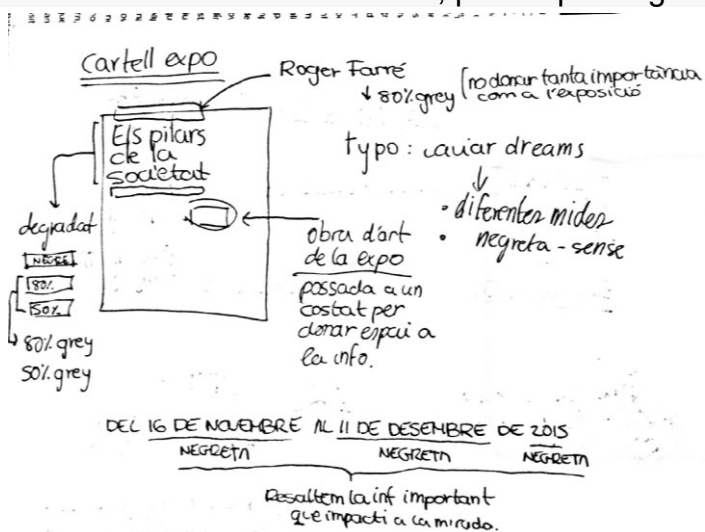 Cartell expo
Roger Farré
↓ 80% grey (no donar tanta importància
com a l'exposició
Els pilars
de la
societat
typo: caviar dreams
↓
• diferentes mides
• negreta - sense
degradat
NEGRE
80%
50%
80% grey
50% grey
obra d'art
de la expo
passada a un
costat per
donar espai a
la info.
DEL 16 DE NOVEMBRE AL 11 DE DESEMBRE DE 2015
NEGRETA NEGRETA NEGRETA
Resaltem la inf important
que impacti a la mirada.